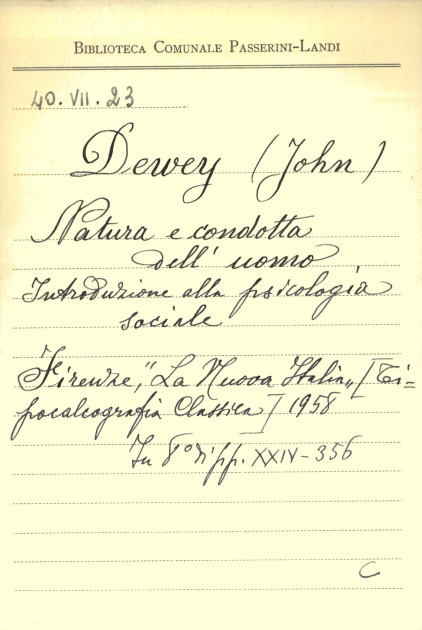 BIBLIOTECA COMUNALE PASSERINI-LANDI
40. VII. 23
Dewey (John)
Natura e condotta
dell' uomo
Introduzione alla psicologia
sociale
Firenze, "La Nuova Italia„ [Ti=
pocalcografia Classica] 1958
In 8° di pp. XXIV-356
C